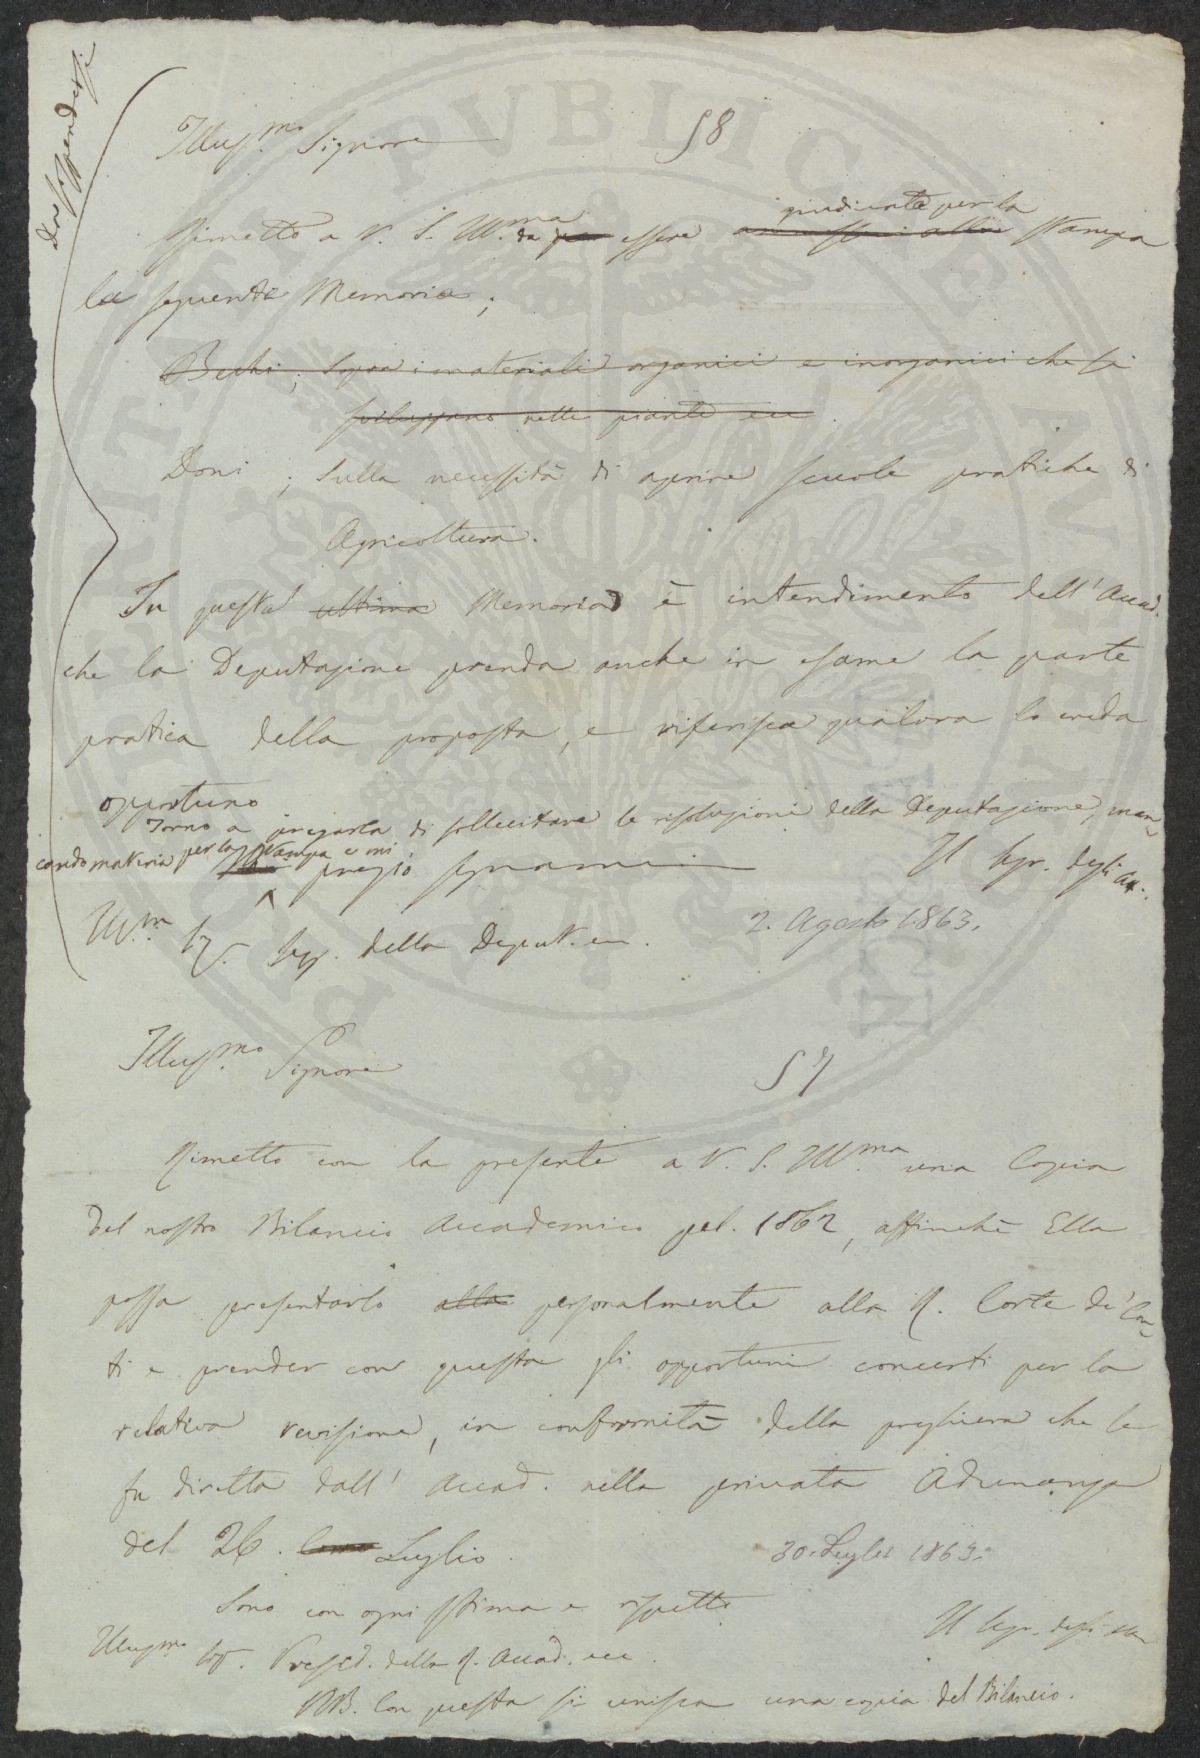 Da sospendersi
Illus.mo Signore 58
giudicata per la
Rimetto a V. S. Ill.ma da per essere alla Stampa
la seguente Memoria;
Bechi; Sopra i materiali organici e inorganici che si
sviluppano nelle piante ecc
Doni; Sulla necessità di aprire scuole pratiche di
Agricoltura.
In questa ultima Memoria è intendimento dell'Accad.
che la Deputazione prenda anche in esame la parte
pratica della proposta, e riferisca qualora lo creda
opportuno
Torno a pregarla di sollecitare le risoluzioni della Deputazione, man-
cando materia per la Stampa e mi
pregio segnarmi Il Segr. degli At.
Ill.mo Sig. Seg. della Deput. ecc. 2. Agosto 1863.
Illus.mo Signore 57
Rimetto con la presente a V. S. Ill.ma una Copia
del nostro Bilancio Accademico pel. 1862, affinchè Ella
possa presentarlo alla personalmente alla R. Corte de' Con-
ti e prender con questa gli opportuni concerti per la
relativa revisione, in conformità della preghiera che le
fu diretta dall' Accad. nella privata Adunanza
del 26. Luglio. 30. Luglio 1863.
Sono con ogni stima e rispetto
Il Segr. degli Atti
Illus.mo Sig. Presid. della R. Accad. ecc.
NB. Con questa si unisca una copia del Bilancio.